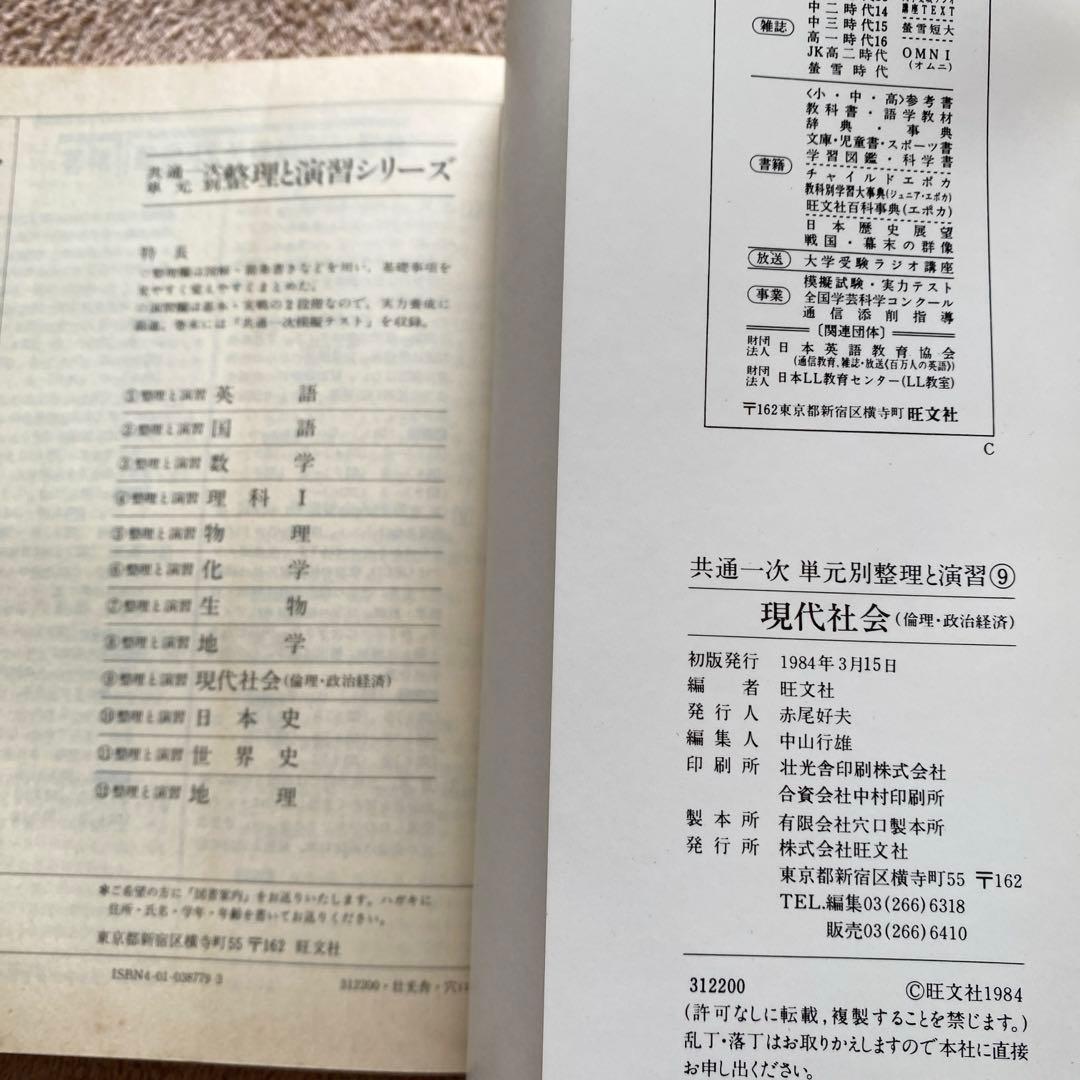 共通一次
単元別
整理と演習シリーズ
特長
○整理欄は図解・箇条書きなどを用い、基礎事項を
見やすく覚えやすくまとめた。
○演習欄は基本・実戦の2段階なので、実力養成に
最適。巻末には『共通一次模擬テスト』を収録。
①整理と演習 英語
②整理と演習 国語
③整理と演習 数学
④整理と演習 理科Ⅰ
⑤整理と演習 物理
⑥整理と演習 化学
⑦整理と演習 生物
⑧整理と演習 地学
⑨整理と演習 現代社会(倫理・政治経済)
⑩整理と演習 日本史
⑪整理と演習 世界史
⑫整理と演習 地理
※ご希望の方に『図書案内』をお送りいたします。ハガキに
住所・氏名・学年・年齢を書いてお送りください。
東京都新宿区横寺町55 〒162 旺文社
ISBN4-01-038779-3
312200・壮光舎・穴口
雑誌
中二時代14
講座TEXT
中三時代15
螢雪短大
高一時代16
JK高二時代
OMNI
(オムニ)
螢雪時代
書籍
〈小・中・高〉参考書
教科書・語学教材
辞典・事典
文庫・児童書・スポーツ書
学習図鑑・科学書
チャイルドエポカ
教科別学習大事典(ジュニア・エポカ)
旺文社百科事典(エポカ)
日本歴史展望
戦国・幕末の群像
放送 大学受験ラジオ講座
事業
模擬試験・実力テスト
全国学芸科学コンクール
通信添削指導
〔関連団体〕
財団法人 日本英語教育協会
(通信教育、雑誌・放送《百万人の英語》)
財団法人 日本LL教育センター(LL教室)
〒162東京都新宿区横寺町 旺文社
C
共通一次 単元別整理と演習⑨
現代社会(倫理・政治経済)
初版発行 1984年3月15日
編者 旺文社
発行人 赤尾好夫
編集人 中山行雄
印刷所 壮光舎印刷株式会社
合資会社中村印刷所
製本所 有限会社穴口製本所
発行所 株式会社旺文社
東京都新宿区横寺町55 〒162
TEL.編集03(266)6318
販売03(266)6410
312200 ©旺文社1984
(許可なしに転載,複製することを禁じます。)
乱丁・落丁はお取りかえしますので本社に直接
お申し出ください。